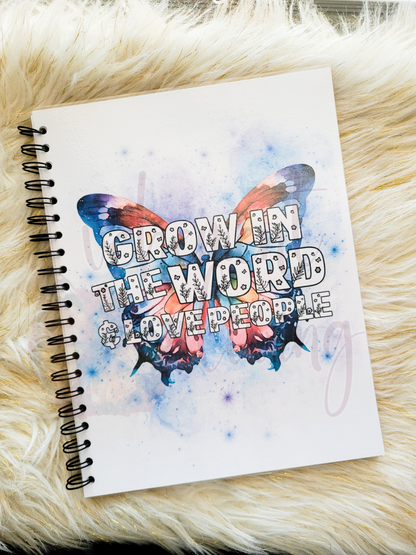 GROW IN
THE WORD
& LOVE PEOPLE